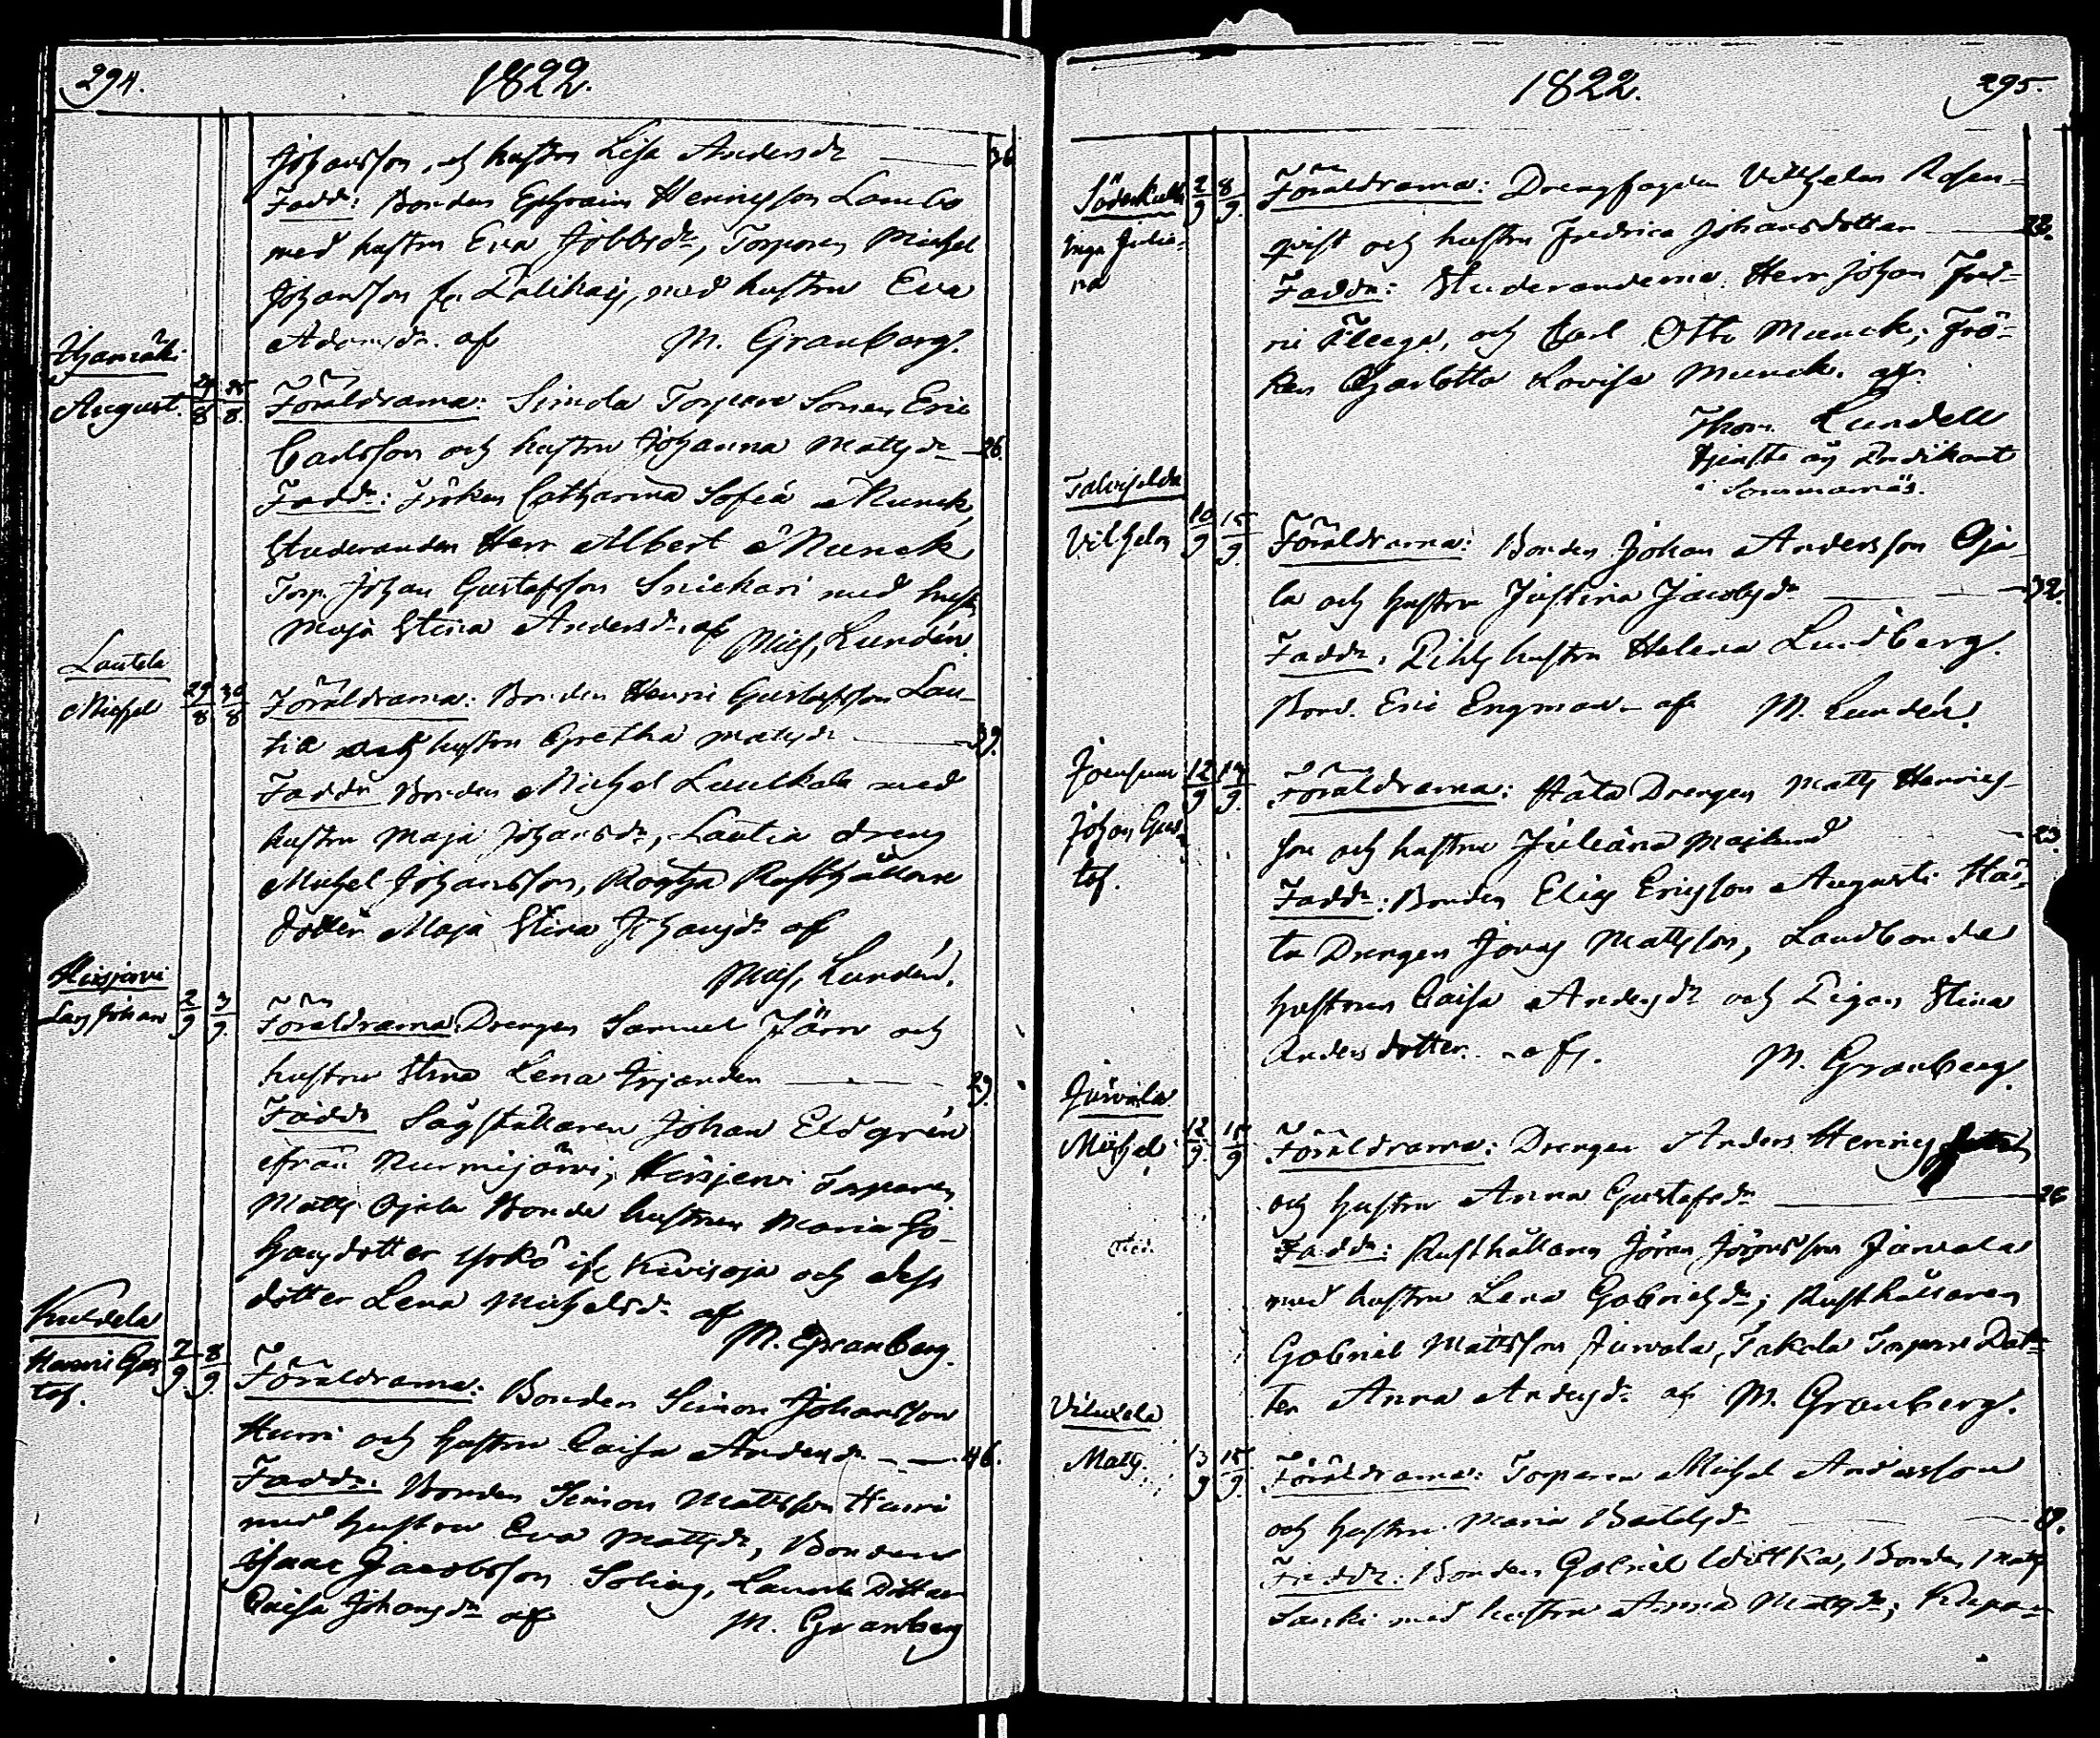 294.
1822.
Johansson, och hustru Lisa Andersdr 36
Fadd: Bonden Ephraim Henricsson Lambo
med hustru Eva Jobbsdr, Torparen Michel
Johansson fr. med hustru Eva
Adamsdr. af M. Granberg.
August. 24/8 25/8
Föräldrarna: Simola Torpare Sonen Eric
Carlsson och hustru Johanna Mattsdr 26.
Faddr: Fröken Catharina Sofia Munck,
Studeranden Herr Albert Munck
Torp. Johan Gustafsson Snickari med hustr
Maja Stina Andersdr. af Mich, Lundén.
Lautela
Michel 29/8 30/8
Föräldrarna: Bonden Henric Gustafsson Lau-
tia och hustru Gretha Mattsdr 39.
Faddr Bonden Michel Luulkala med
hustru Maja Johansdr, Lautia dreng
Michel Johansson, Rusthållare
dotter Maja Stina Johansdr af
Mich, Lundén.
Hirsjärvi
Johan 2/9 3/9
Föräldrarna: Drengen Samuel Järn och
hustru Stina Lena 29.
Faddr Sågställaren Johan Eldgrén
ifrån Nurmijärvi, Hirsjervi Torparen
Matts Ojala Bonde hustrun Maria Jo-
hansdotter Yrkö if. Kivioja och dess
dotter Lena Michelsdr af
M. Granberg.
Kuldela
Henric Gus
tof. 7/9 8/9
Föräldrarna: Bonden Simon Johansson
Hurri och hustru Caisa Andersdr 46.
Faddr: Bonden Simon Mattsson Hurri
med hustru Eva Mattsdr, Bonden
Isaac Jacobsson Dottren
Caisa Johansdr af M. Granberg
1822.
295.
Söderkulla
Inga Julia-
na 2/9 8/9
Föräldrarna: Drengfogden Vilhelm Rosen-
qvist och hustru Fredrica Johansdotter 22.
Faddr: Studeranderna Herr Johan Fred-
ric och Carl Otto Munck; Frö-
ken Charlotta Lovisa Munck. af
Thom. Lundell
Tjenste Predikant
i Sommarnäs.
Talvisilda
Vilhelm 10/9 15/9
Föräldrarna: Bonden Johan Andersson Oja-
la och hustru Justina Jacobsdr 32.
Faddr: hustru Helena Lundberg.
Bond. Eric Engman af M. Lundén.
Joensuu
Johan Gus-
tof. 12/9 14/9
Föräldrarna: Drengen Matts Henrics-
son och hustru Juliana Majlund 23.
Faddr: Bonden Elias Ericsson Augusti
Drengen Jonas Mattsson, Landbonde
hustrun Caisa Andersdr och Pigan Stina
Andersdotter. af. M. Granberg.
Järvola
Michel 12/9 15/9
Föräldrarna: Drengen Anders Henrics
och hustru Anna Gustafsdr 26
Faddr: Rusthållaren Jöran Jöransson Järvola
med hustru Lena Gabrielsdr; Rusthållaren
Gabriel Mattsson Järvola, Jakola Torpare Dot-
ter Anna Andersdr af M. Granberg.
Viluxela
Matts. 13/9 15/9
Föräldrarna: Torparen Michel Andersson
och hustru Maria
Faddr: Bonden Gabriel Wittka, Bonden Matts
med hustru Anna Mattsdr;